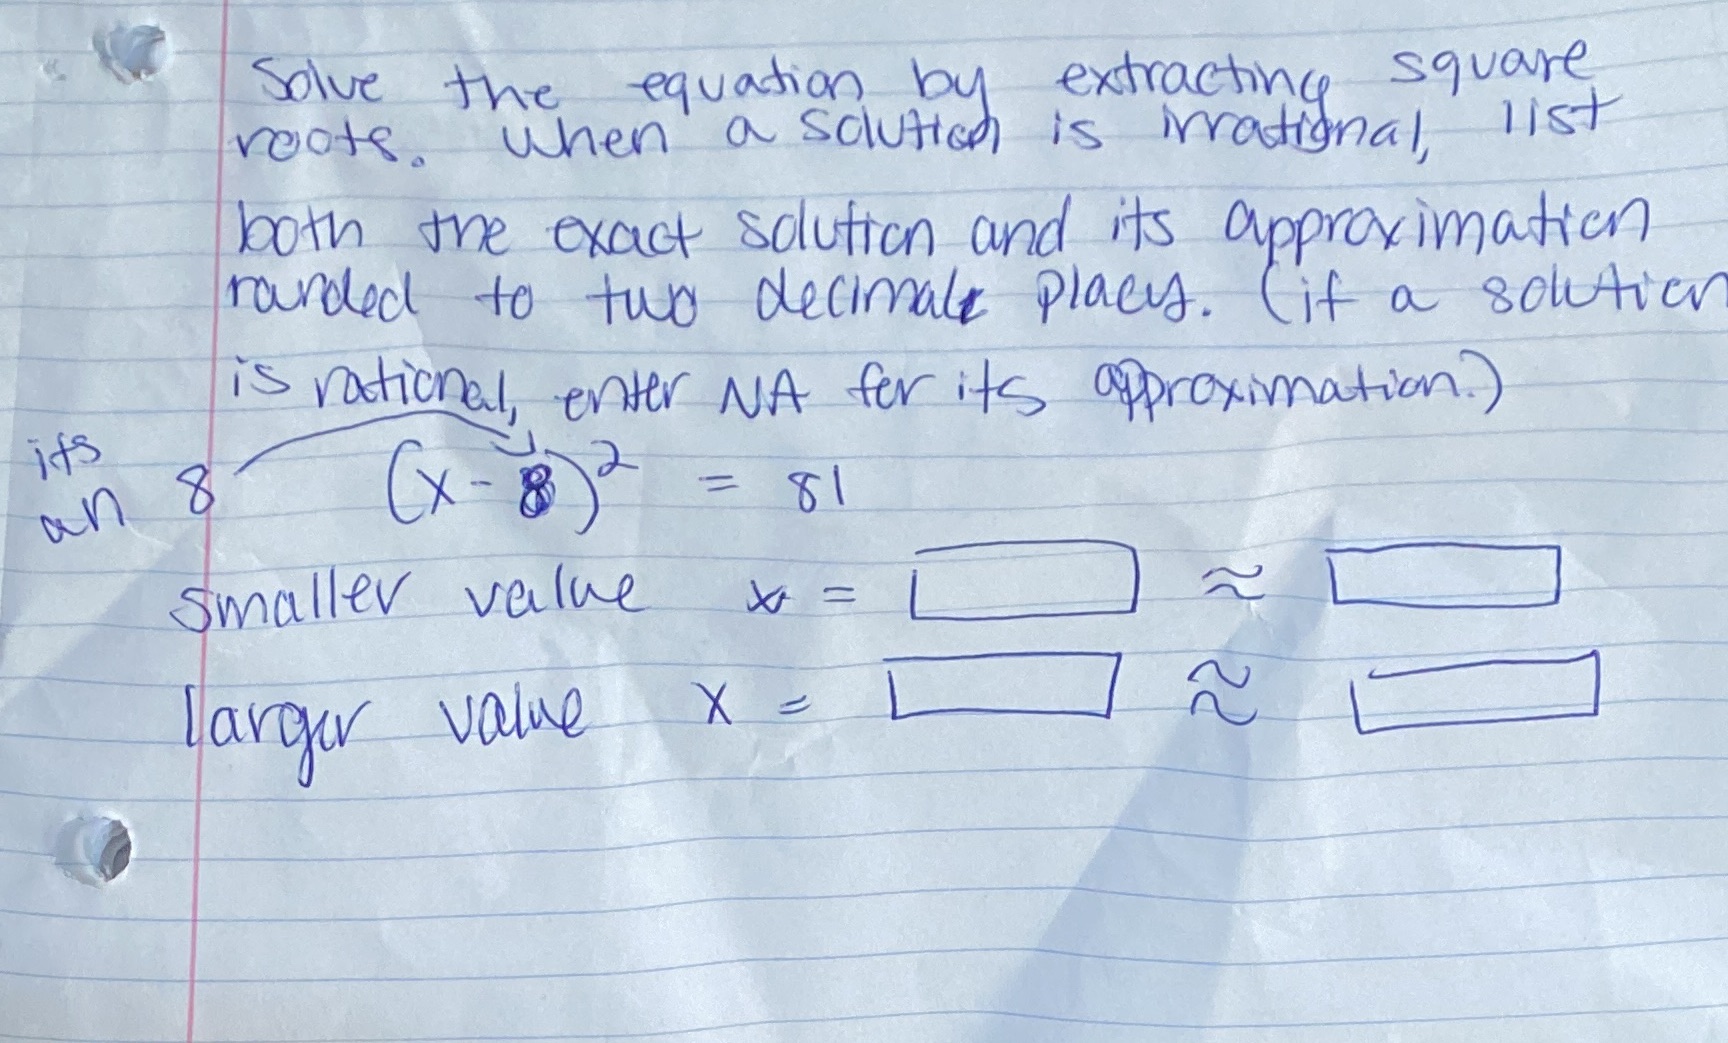 Solve the equation by extracting square
roots. When a solution is irrational, list
both the exact solution and its approximation
rounded to two decimal places. (if a solution
is rational, enter NA for its approximation.)
its an 8 (x - 8)² = 81
smaller value x = ≈
larger value x = ≈